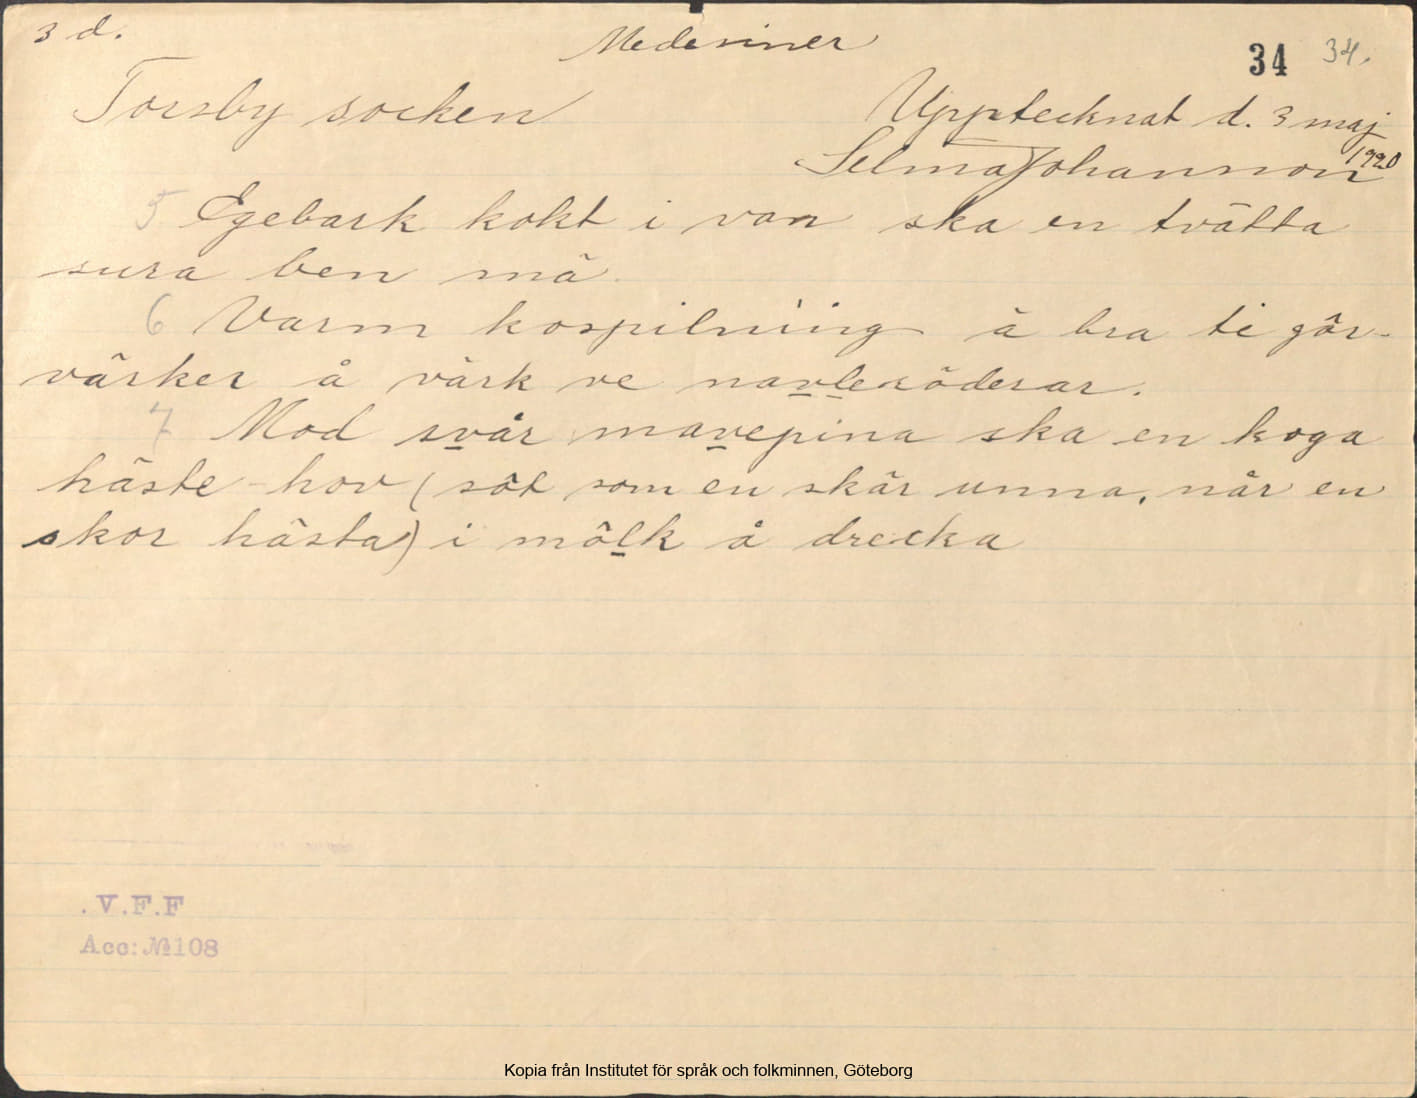 3 d.
Medesiner
34 34.
Torsby socken
Upptecknat d. 3 maj
Selma Johansson 1920
5 Egebark kokt i van ska en tvätta
sura ben mä.
6 Varm kospilning ä bra ti gör-
värker å värk ve navleröderar.
7 Mod svår mavepina ska en koga
häste-hov (söt som en skär unna, når en
skor hästa) i mölk å drecka
. V.F.F
Acc: №108
Kopia från Institutet för språk och folkminnen, Göteborg